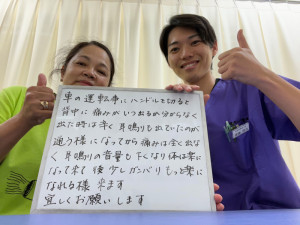 車の運転中にハンドルを切ると
背中に痛みがいつ出るか分からなく
出た時は辛く 耳鳴りも出ていたのが
通う様になってから痛みは全く出な
く 耳鳴りの音量も下になり体は楽に
なって来て 後少しガンバりもっと楽に
なれる様 来ます
宜しくお願いします